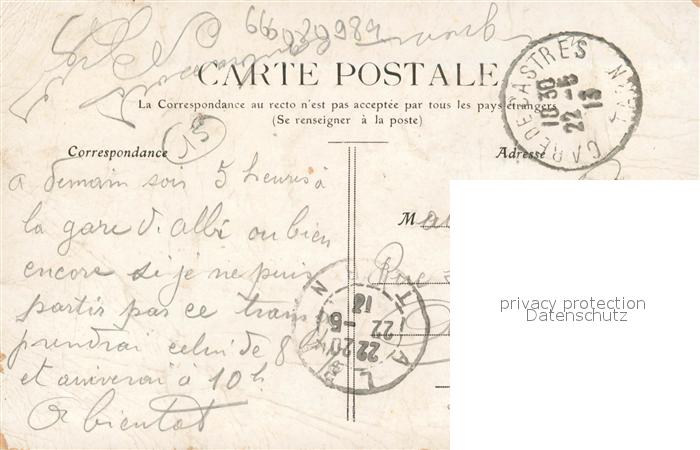 CARTE POSTALE
La Correspondance au recto n'est pas acceptée par tous les pays étrangers
(Se renseigner à la poste)
15
GARE DE CASTRES
TARN
10 30
22 - 5
13
Correspondance
Adresse
a demain soir 5 heures à
la gare d'Albi ou bien
encore si je ne puis
partir par ce train
prendrai celui de 8 h
et arriverai à 10 h
A bientot
M
Rue
ALBI
TARN
22 20
22 - 5
13
privacy protection
Datenschutz